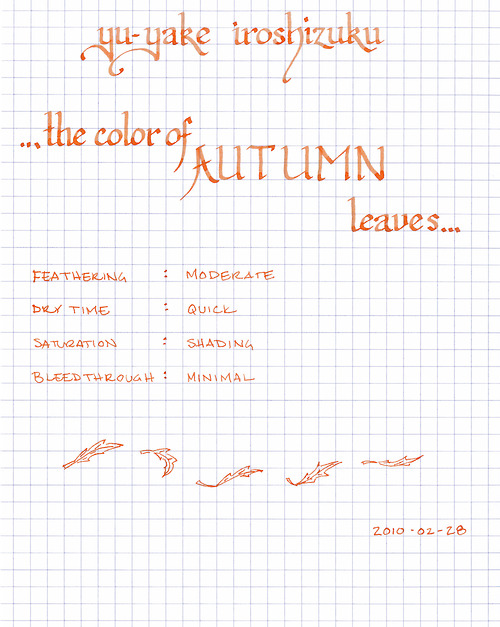 yu-yake iroshizuku
...the color of
AUTUMN
leaves...
FEATHERING : MODERATE
DRY TIME : QUICK
SATURATION : SHADING
BLEEDTHROUGH : MINIMAL
2010-02-28